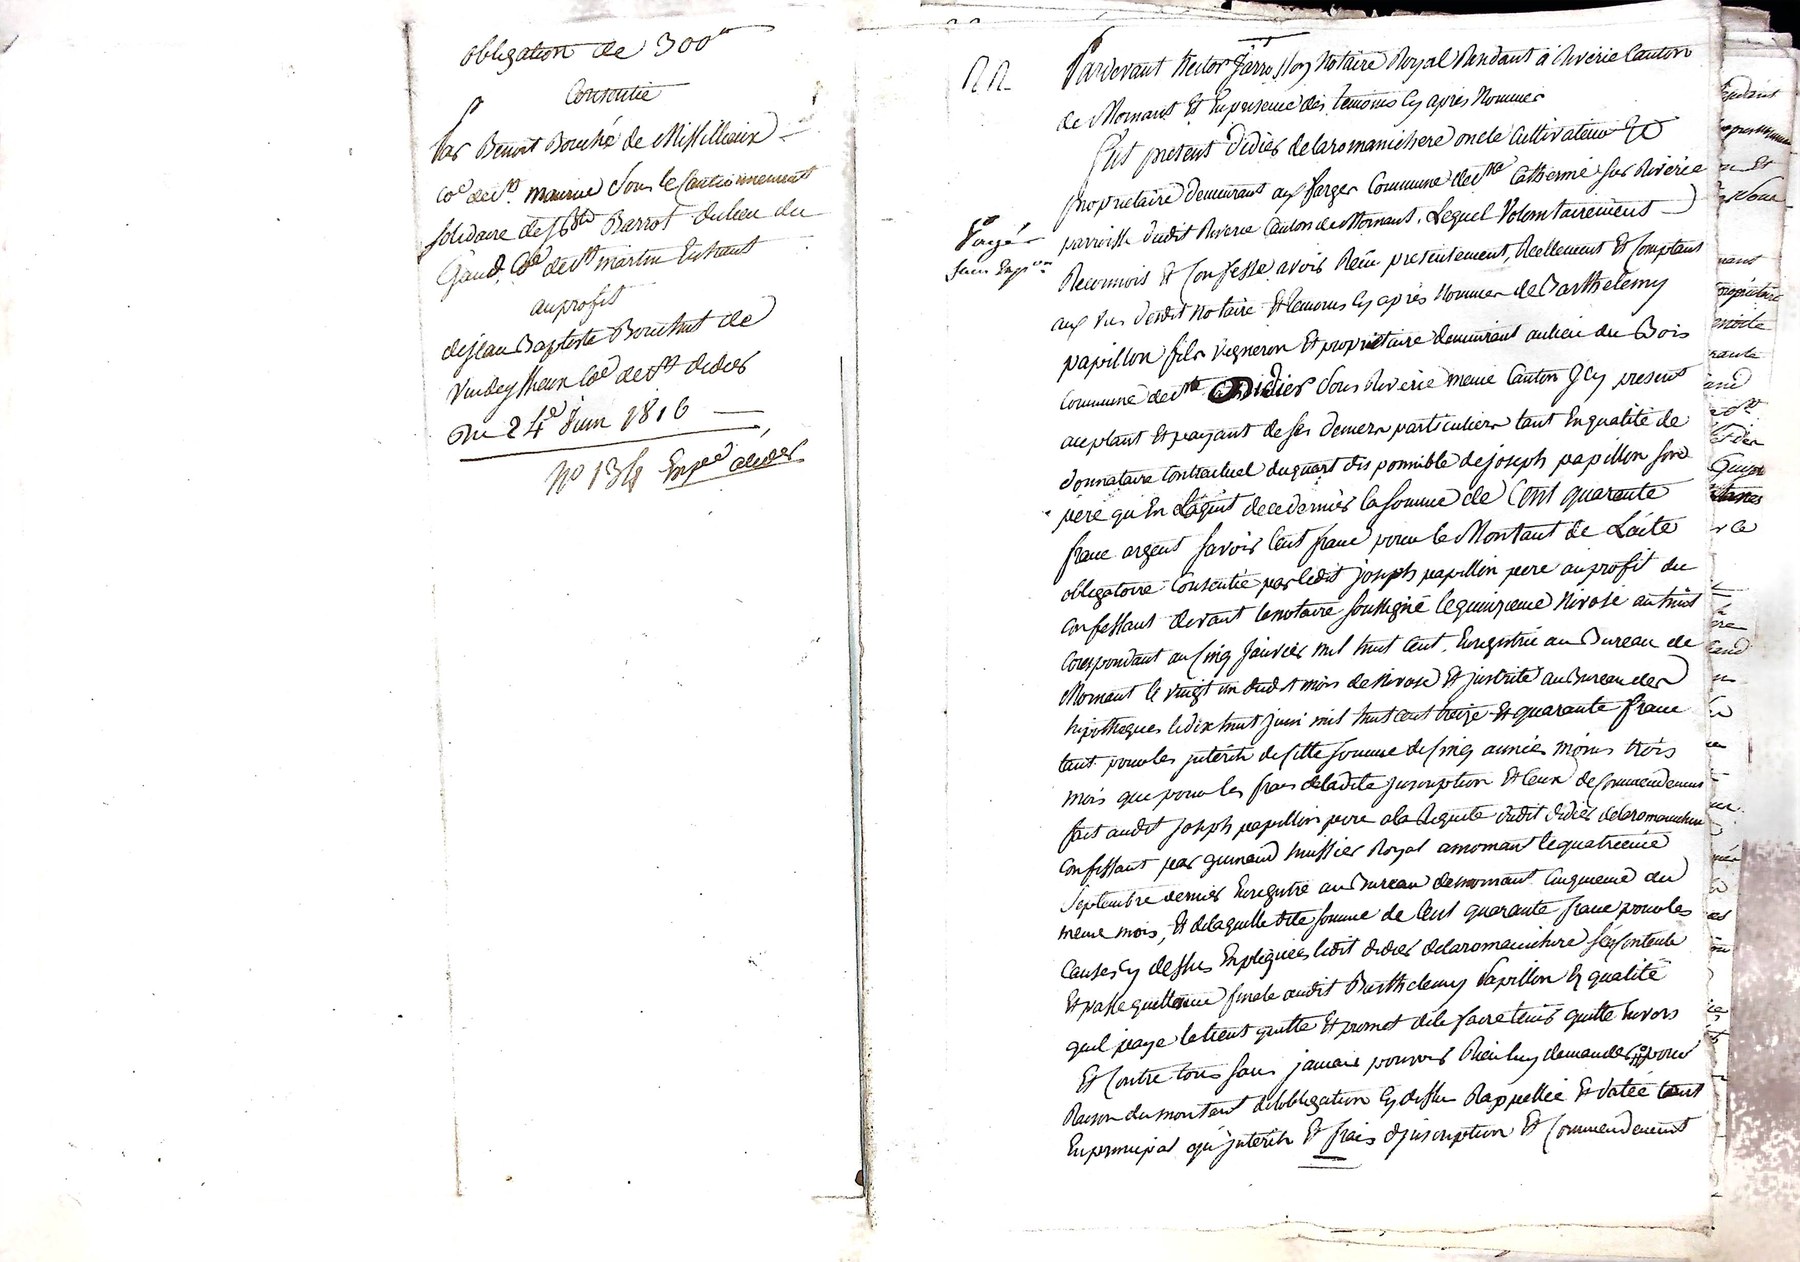 obligation de 300#
Consentie
Par Benoit Bouché de Missillieux
Coe. de St. maurice sous le Cautionnement
solidaire de Barrot du lieu du
Coe de St martin En haut
au profit
de Jean Baptiste Bouchut de
Coe de St didier
Du 24e Juin 1816
No 134 Expee
Pardevant Hector Notaire Royal Rendant à Riverie Canton
de Mornant Et En presence des temoins Cy après Nommer
fut present Didier delaromanichere oncle Cultivateur Et
proprietaire demeurant aux farges Commune de Ste Catherine sur Riverie
parroisse dudit Riverie Canton de Mornant. Lequel Volontairement
Payé
sans Expon
Reconnois Et Confesse avoir Reçu presentement, Reellement Et Comptant
aux vus dudit Notaire Et temoins Cy après Nommer de Barthelemy
papillon fils vigneron Et propriétaire demeurant au lieu du Bois
Commune de St Didier sous Riverie meme Canton Jcy present
aceptant Et payant de ses deniers particuliers tant En qualité de
donnataire Contractuel du quart disponnible de joseph papillon son
père qu'En L'aquit de ce dernier la somme de Cent quarante
franc argent savoir Cent franc pour le Montant de L'acte
obligatoire Consentie par ledit joseph papillon pere au profit du
Confessant devant le notaire soussigné le quinzieme Nivose an huit
Corespondant au Cinq Janvier mil huit Cent. Enregistrée au Bureau de
Mornant le vingt un dudit mois de Nivose Et jnscrite au Bureau des
hipotheques le dix huit juin mil huit cent treize Et quarante franc
tant pour les jnterêts de Cette somme de Cinq années moins trois
mois que pour les frais de ladite jnscription Et Ceux de Commendement
fait audit joseph papillon pere a la Requete dudit didier delaromanichere
Confessant par huissier Royal a mornant le quatrieme
Septembre dernier Enregistré au Bureau de mornant Cinquieme du
meme mois, Et de laquelle dite somme de Cent quarante franc pour les
Causes Cy dessus Expliquées ledit didier delaromanichere s'es Contente
Et passe quittance finale audit Barthelemy Papillon En qualité
quil paye le tient quitte Et promet de le faire tenir quitte Envers
Et Contre tous sans jamais pouvoir Rien luy demander pour
Raison du montant de l'obligation Cy dessus Rappellée Et datée tant
En principal qu'jnterêts Et frais d'jnscription Et Commendement